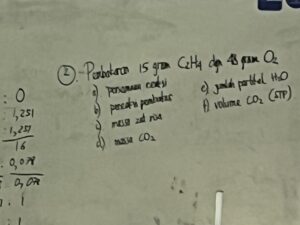 ② - Pembakaran 15 gram C₂H₄ dgn 48 gram O₂
a) persamaan reaksi
b) pereaksi pembatas
c) massa zat sisa
d) massa CO₂
e) jumlah partikel H₂O
f) volume CO₂ (STP)
: 0
: 1,251
: 1,251
16
: 0,078
0,078
: 1
: 1